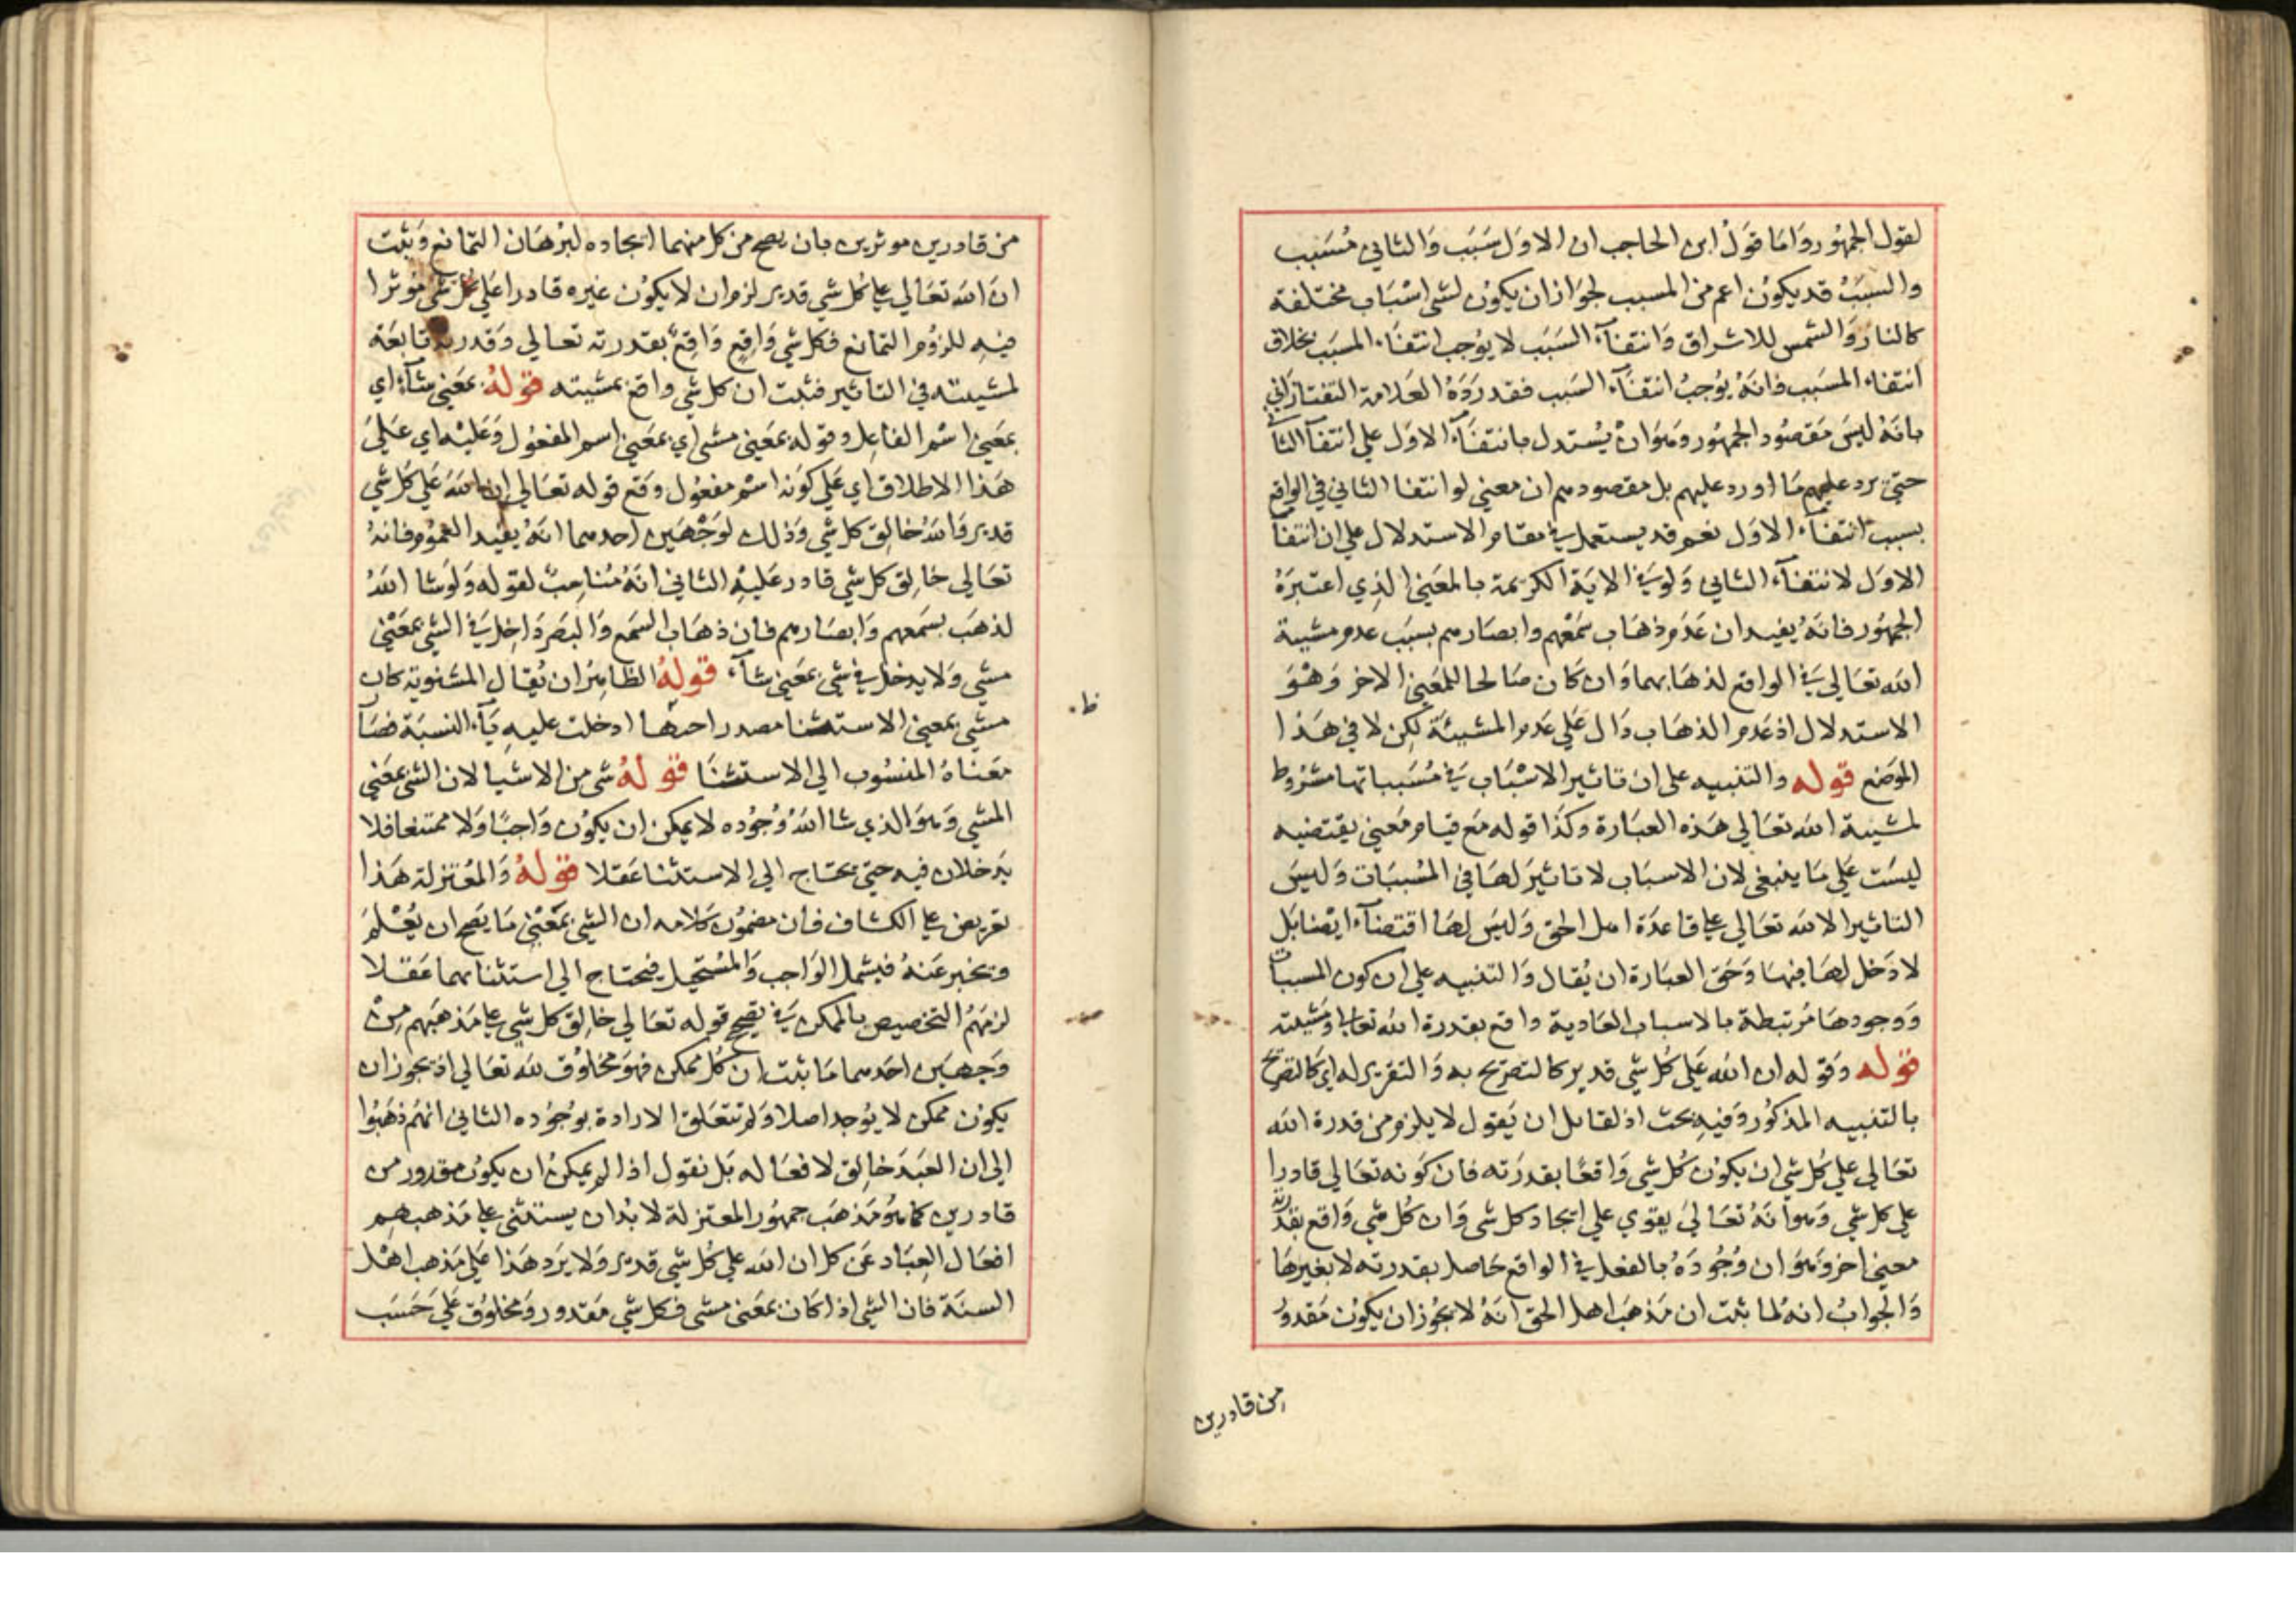 لقول الجمهور واما قول ابن الحاجب ان الاول سبب والثاني مسبب
والسبب قد يكون اعم من المسبب لجواز ان يكون لشي اسباب مختلفة
كالنار والشمس للاشراق وانتفاء السبب لا يوجب انتفاء المسبب بخلاف
انتفاء المسبب فانه يوجب انتفاء السبب فقد رده العلامة التفتازاني
بانه ليس مقصود الجمهور وهو ان يستدل بانتفاء الاول علي انتفآ الثا
حتى يرد عليهم ما اورد عليهم بل مقصودهم ان معني لو انتفا الثاني في الواقع
بسبب انتفاء الاول نعم قد يستعمل في مقام الاستدلال علي ان انتفآ
الاول لانتفاء الثاني ولو في الاية الكريمة بالمعني الذي اعتبره
الجمهور فانه يفيد ان عدم ذهاب سمعهم وابصارهم بسبب عدم مشية
الله تعالي في الواقع لذهابهما وان كان صالحا للمعني الاخر وهو
الاستدلال اذ عدم الذهاب دال علي عدم المشيئة لكن لا في هذا
الموضع قوله والتنبيه على ان تاثير الاسباب في مسبباتها مشروط
لمشية الله تعالي هذه العبارة وكذا قوله مع قيام معني يقتضيه
ليست علي ما ينبغي لان الاسباب لا تاثير لها في المسببات وليس
التاثير الا لله تعالي علي قاعدة اهل الحق وليس لها اقتضاء ايضا بل
لا دخل لها فيها وحق العبارة ان يقال والتنبيه علي ان كون المسببات
ووجودها مرتبطة بالاسباب العادية واقع بقدرة الله تعالي ومشيئته
قوله وقوله ان الله علي كل شي قدير كالتصريح به والتقرير له اي كالتصريح
بالتنبيه المذكور وفيه بحث اذ لقايل ان يقول لا يلزم من قدرة الله
تعالي علي كل شي ان يكون كل شي واقعا بقدرته فان كونه تعالي قادرا
علي كل شي وهو انه تعالي يقوي علي ايجاد كل شي وان كل شي واقع بقدرته
معني اخر وهو ان وجوده بالفعل في الواقع حاصل بقدرته لا بغيرها
والجواب انه لما ثبت ان مذهب اهل الحق انه لا يجوز ان يكون مقدور
من قادرين
من قادرين موثرين بان يصح من كل منهما ايجاده لبرهان التمانع وثبت
ان الله تعالي علي كل شي قدير لزم ان لا يكون غيره قادرا علي كل شي موثرا
فيه للزوم التمانع فكل شي واقع واقع بقدرته تعالي وقدرته تابعة
لمشيئته في التاثير فثبت ان كل شي واقع بمشيته قوله بمعني شآء اي
بمعني اسم الفاعل وقوله بمعني مشي اي بمعني اسم المفعول وعليه اي علي
هذا الاطلاق اي علي كونه اسم مفعول وقع قوله تعالي ان الله علي كل شي
قدير والله خالق كل شي وذلك لوجهين احدهما انه يفيد العموم فانه
تعالي خالق كل شي قادر عليه الثاني انه مناسب لقوله ولو شا الله
لذهب بسمعهم وابصارهم فان ذهاب السمع والبصر داخل في الشي بمعني
مشي ولا يدخل في شي بمعني شآء قوله الظاهر ان يقال المثنوية كان
مشي بمعني الاستثنا مصدر احدها ادخلت عليه يآء النسبة فصآ
ظ
معناه المنسوب الي الاستثنا قوله شي من الاشيا لان الشي بمعني
المشي وهو الذي شا الله وجوده لا يمكن ان يكون واجبا ولا ممتنعا فلا
يدخلان فيه حتي يحتاج الي الاستثنا عقلا قوله والمعتزلة هذا
تعريض علي الكشاف فان مضمون كلامه ان الشي بمعني ما يصح ان يعلم
ويخبر عنه فيشمل الواجب والمستحيل فيحتاج الي استثنايهما عقلا
لزمهم التخصيص بالممكن في تصحيح قوله تعالي خالق كل شي علي مذهبهم من
وجهين احدهما ما ثبت ان كل ممكن فهو مخلوق لله تعالي اذ يجوز ان
يكون ممكن لا يوجد اصلا ولم تتعلق الارادة بوجوده الثاني انهم ذهبوا
الي ان العبد خالق لافعاله بل نقول اذا لم يمكن ان يكون مقدور من
قادرين كما هو مذهب جمهور المعتزلة لا بد ان يستثني علي مذهبهم
افعال العباد عن كل ان الله علي كل شي قدير ولا يرد هذا علي مذهب اهل
السنة فان الشي اذا كان بمعني مشي فكل شي مقدور ومخلوق علي حسب